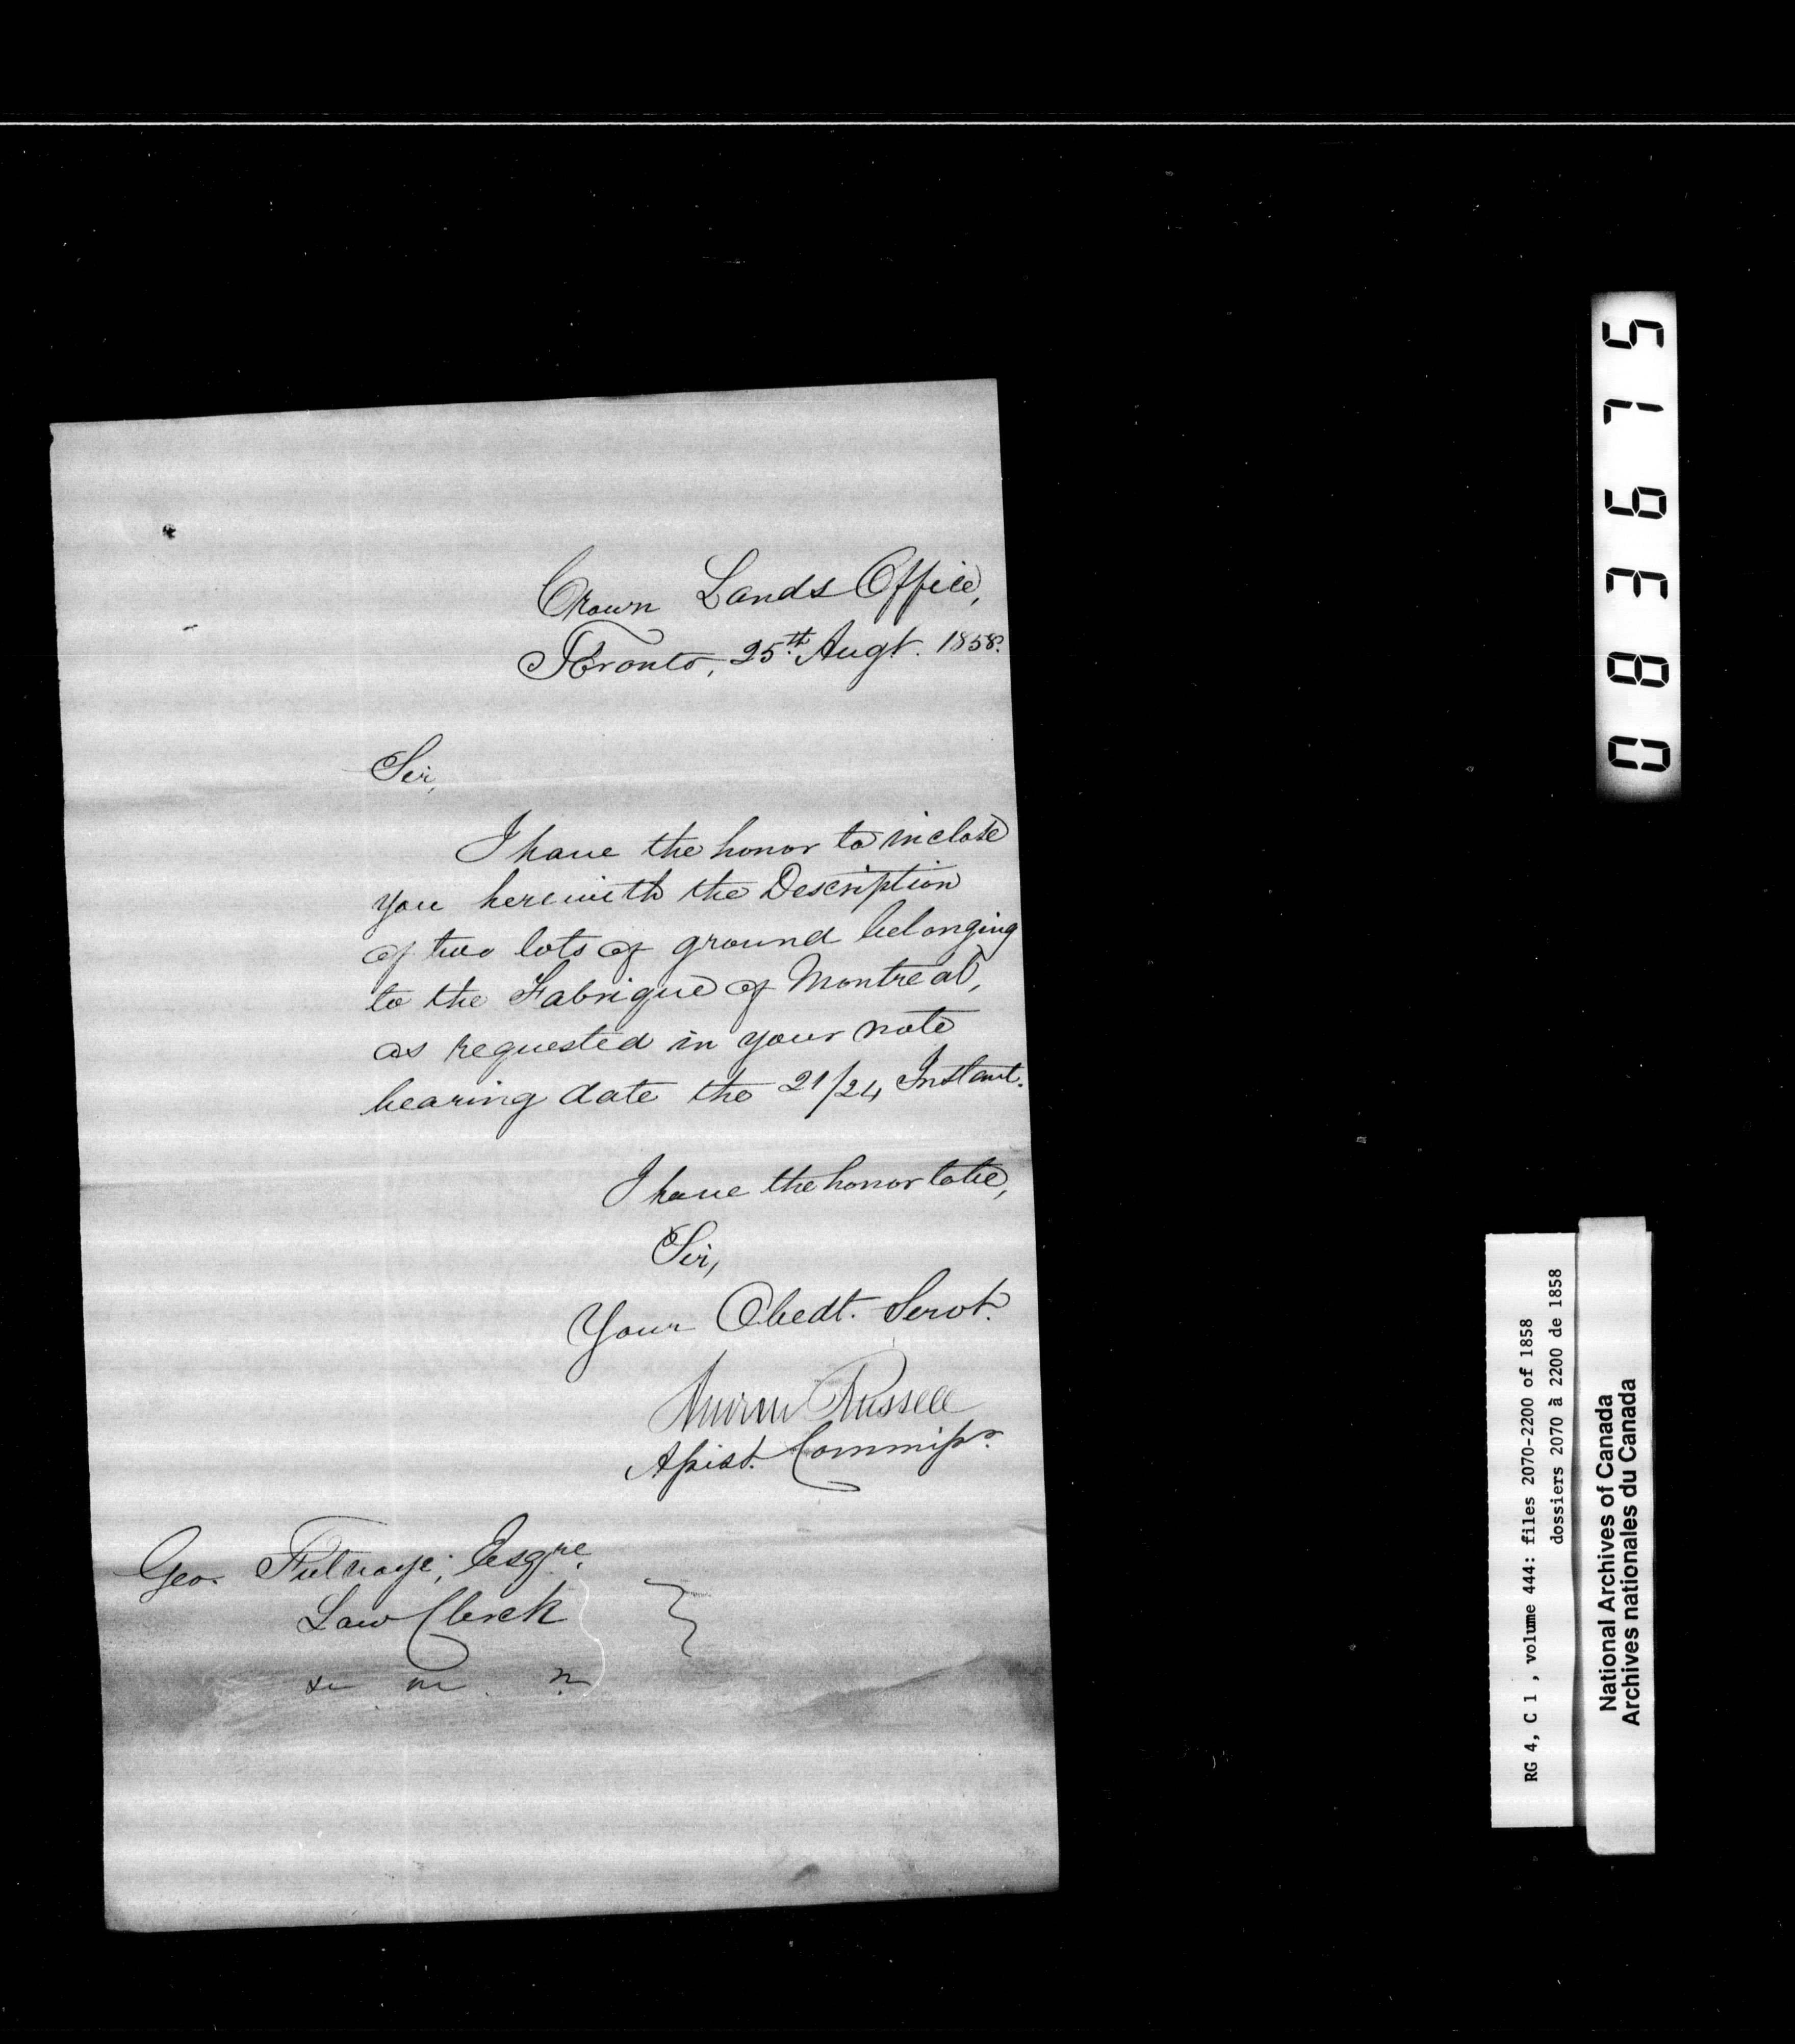 Crown Lands Office,
Toronto, 25th. Augt. 1858.
Sir,
I have the honor to inclose
you herewith the Description
of two lots of ground belonging
to the Fabrique of Montreal,
as requested in your note
bearing date the 21/24 Instant.
I have the honor to be,
Sir,
Your Obedt. Servt.
Russell
Assist. Commissr.
Geo. Futvoye, Esqre.
Law Clerk
083615
RG 4, C 1 , volume 444: files 2070-2200 of 1858
dossiers 2070 à 2200 de 1858
National Archives of Canada
Archives nationales du Canada